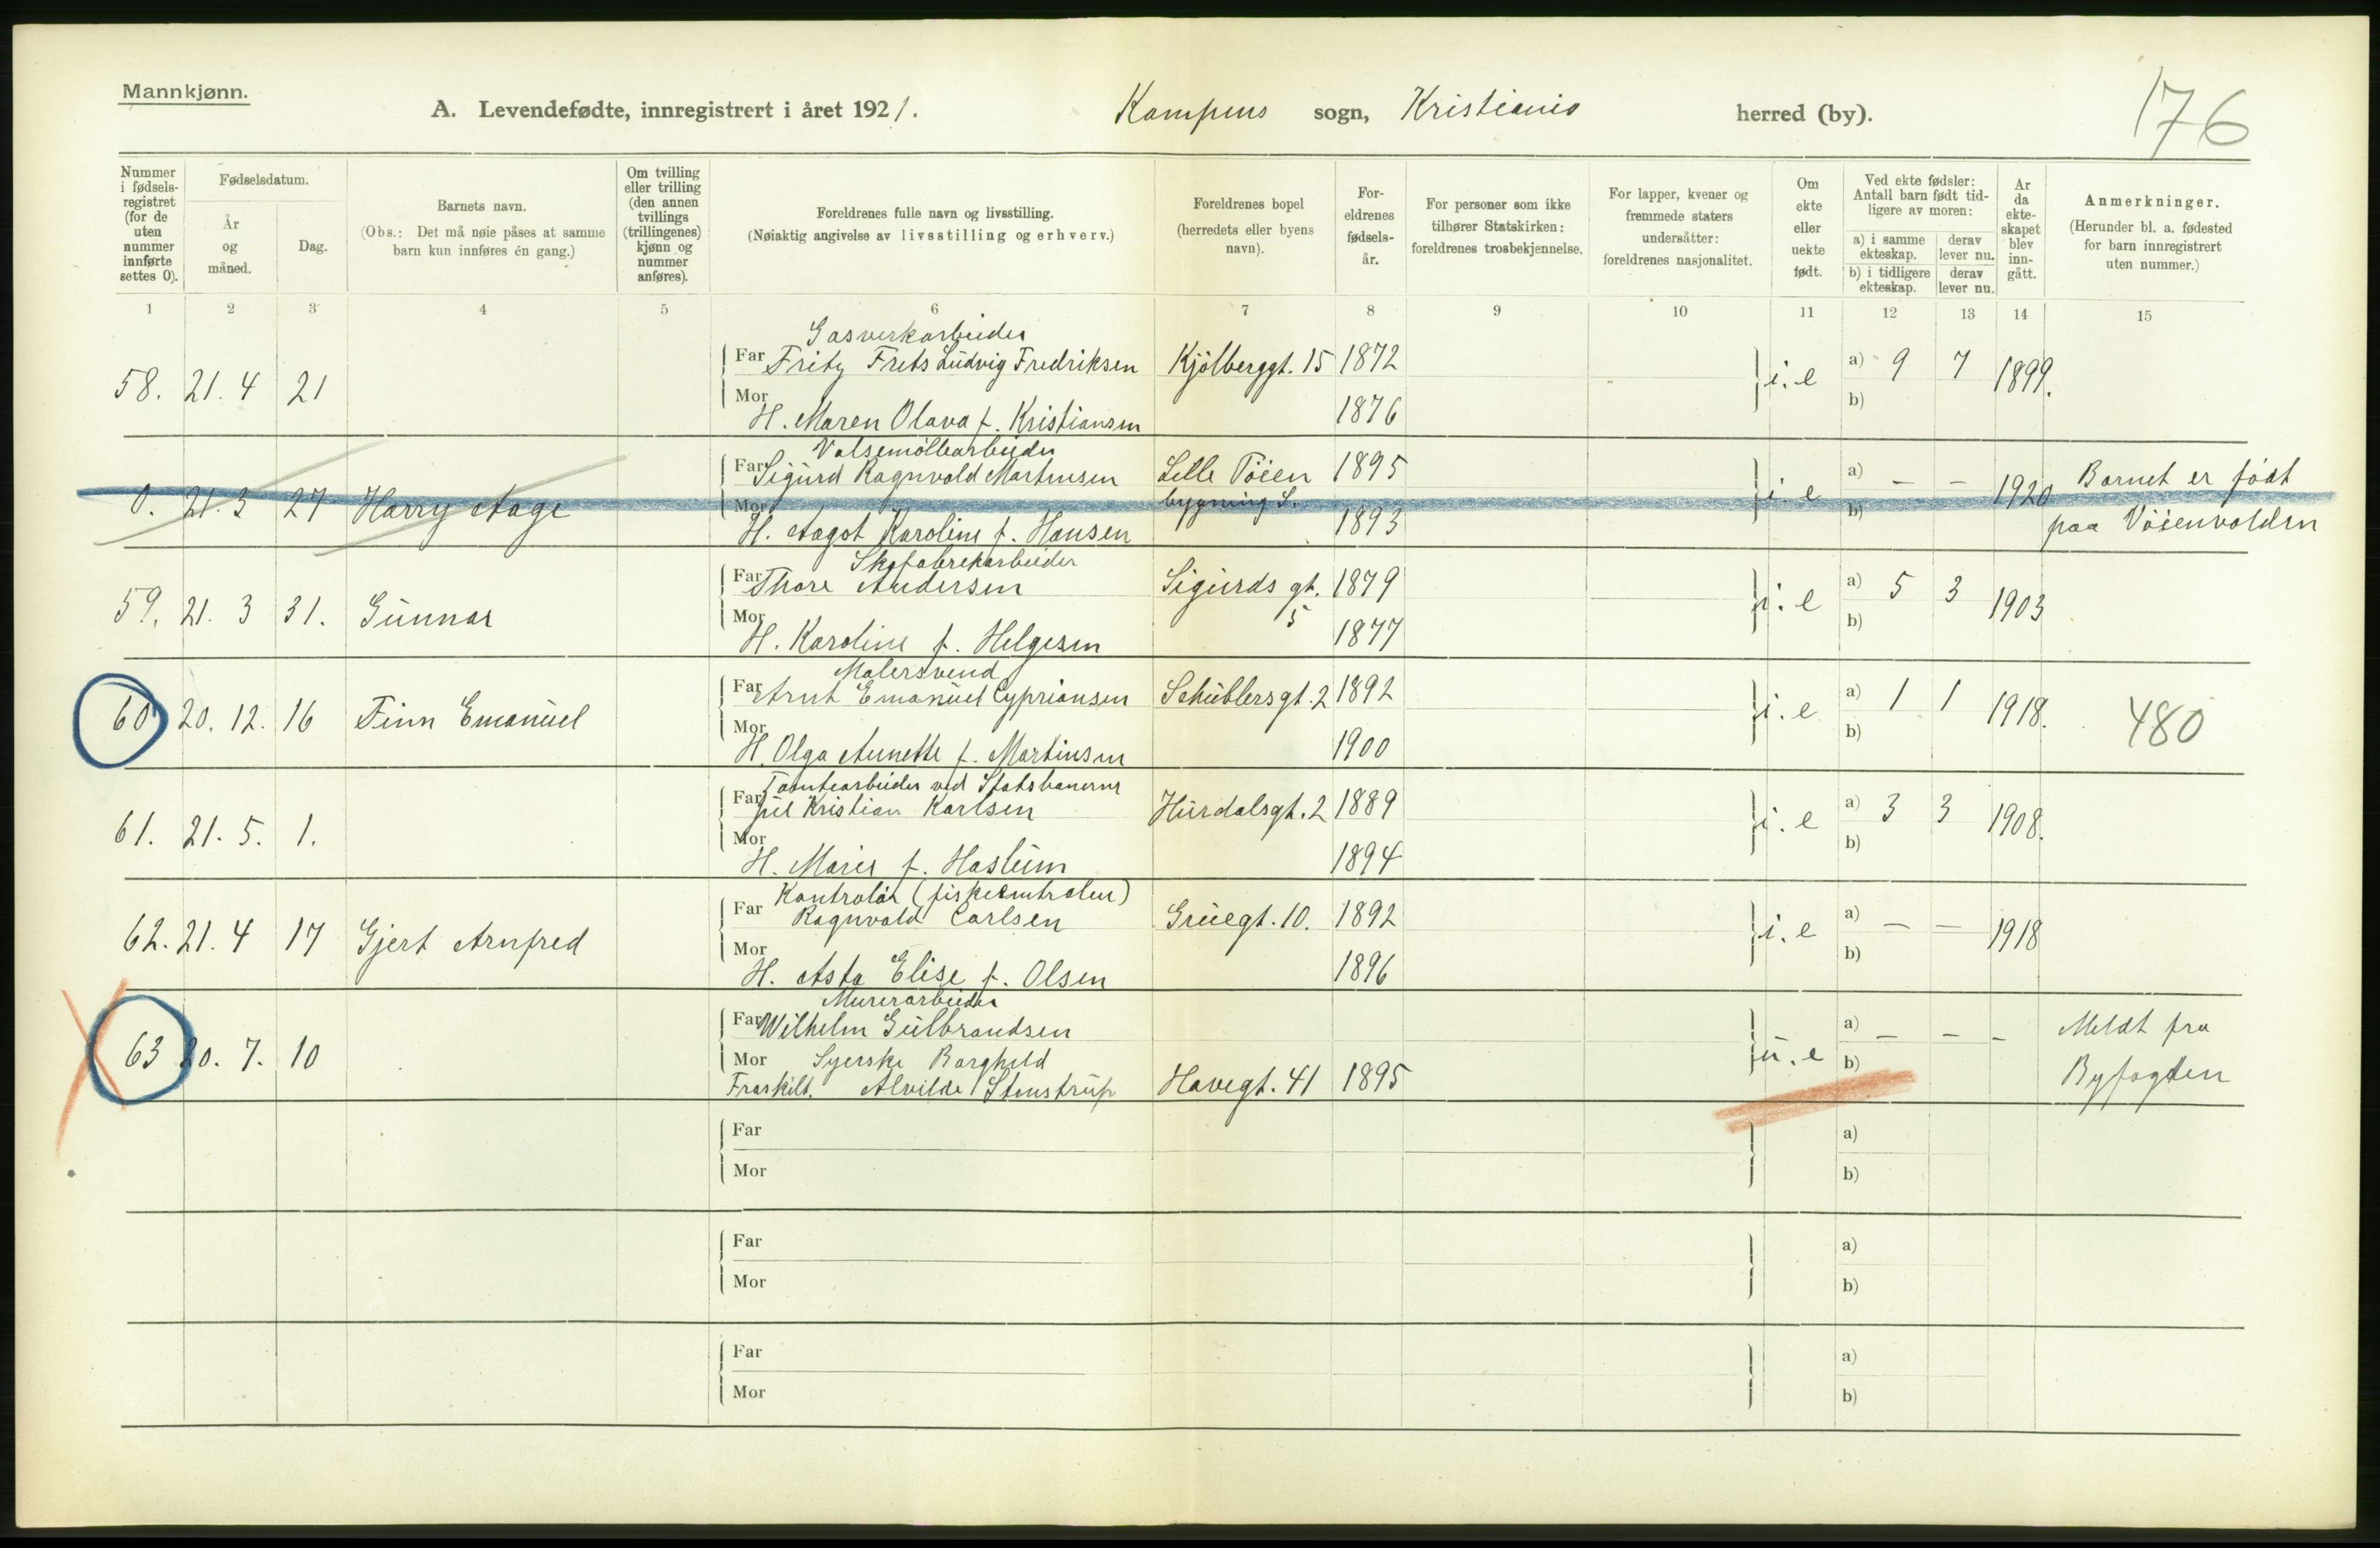 Mannkjønn.
A. Levendefødte, innregistrert i året 1921. Kampens sogn, Kristiania herred (by). 176
Nummer i fødselsregistret (for de uten nummer innførte settes 0).
Fødselsdatum.
År og måned.
Dag.
Barnets navn.
(Obs.: Det må nøie påses at samme barn kun innføres én gang.)
Om tvilling eller trilling (den annen tvillings (trillingenes) kjønn og nummer anføres).
Foreldrenes fulle navn og livsstilling.
(Nøiaktig angivelse av livsstilling og erhverv.)
Foreldrenes bopel (herredets eller byens navn).
Foreldrenes fødselsår.
For personer som ikke tilhører Statskirken: foreldrenes trosbekjennelse.
For lapper, kvener og fremmede staters undersåtter: foreldrenes nasjonalitet.
Om ekte eller uekte født.
Ved ekte fødsler: Antall barn født tidligere av moren:
a) i samme ekteskap. derav lever nu.
b) i tidligere ekteskap. derav lever nu.
År da ekteskapet blev inngått.
Anmerkninger.
(Herunder bl. a. fødested for barn innregistrert uten nummer.)
1 2 3 4 5 6 7 8 9 10 11 12 13 14 15
Gasverkarbeider
58. 21. 4 21 Far Fritz Frets Ludvig Fredriksen Kjölberggt. 15 1872 i. e a) 9 7 1899.
Mor H. Maren Olava f. Kristiansen 1876 b)
Valsemöllearbeider
0. 21. 3 27 Harry Aage Far Sigurd Ragnvold Martinsen Lille Töien bygning S. 1895 i e a) — — 1920 Barnet er födt
Mor H. Aagot Karoline f. Hansen 1893 b) paa Vöienvolden
Skofabrekarbeider
59. 21. 3 31. Gunnar Far Thore Andersen Sigurds gt. 5 1879 i. e a) 5 3 1903
Mor H. Karoline f. Helgesen 1877 b)
Malersvend
60 20. 12. 16 Finn Emanuel Far Arnt Emanuel Cypriansen Schüblersgt. 2 1892 i. e a) 1 1 1918. 480
Mor H. Olga Annette f. Martinsen 1900 b)
ved Statsbanerne
61. 21. 5. 1. Far Kristian Karlsen Hurdalsgt. 2 1889 i. e a) 3 3 1908.
Mor H. Marie f. Haslum 1894 b)
Kontrolör (fiskecentralen)
62. 21. 4 17 Gjert Arnfred Far Ragnvald Carlsen Gruegt. 10. 1892 i. e a) — — 1918
Mor H. Asta Elise f. Olsen 1896 b)
Murerarbeider
63 20. 7. 10 Far Wilhelm Gulbrandsen u. e a) — — — Meldt fra
Mor Syerske Borghild b) Byfogden
Fraskilt. Alvilde Stenstrup Havegt. 41 1895
Far a)
Mor b)
Far a)
Mor b)
Far a)
Mor b)